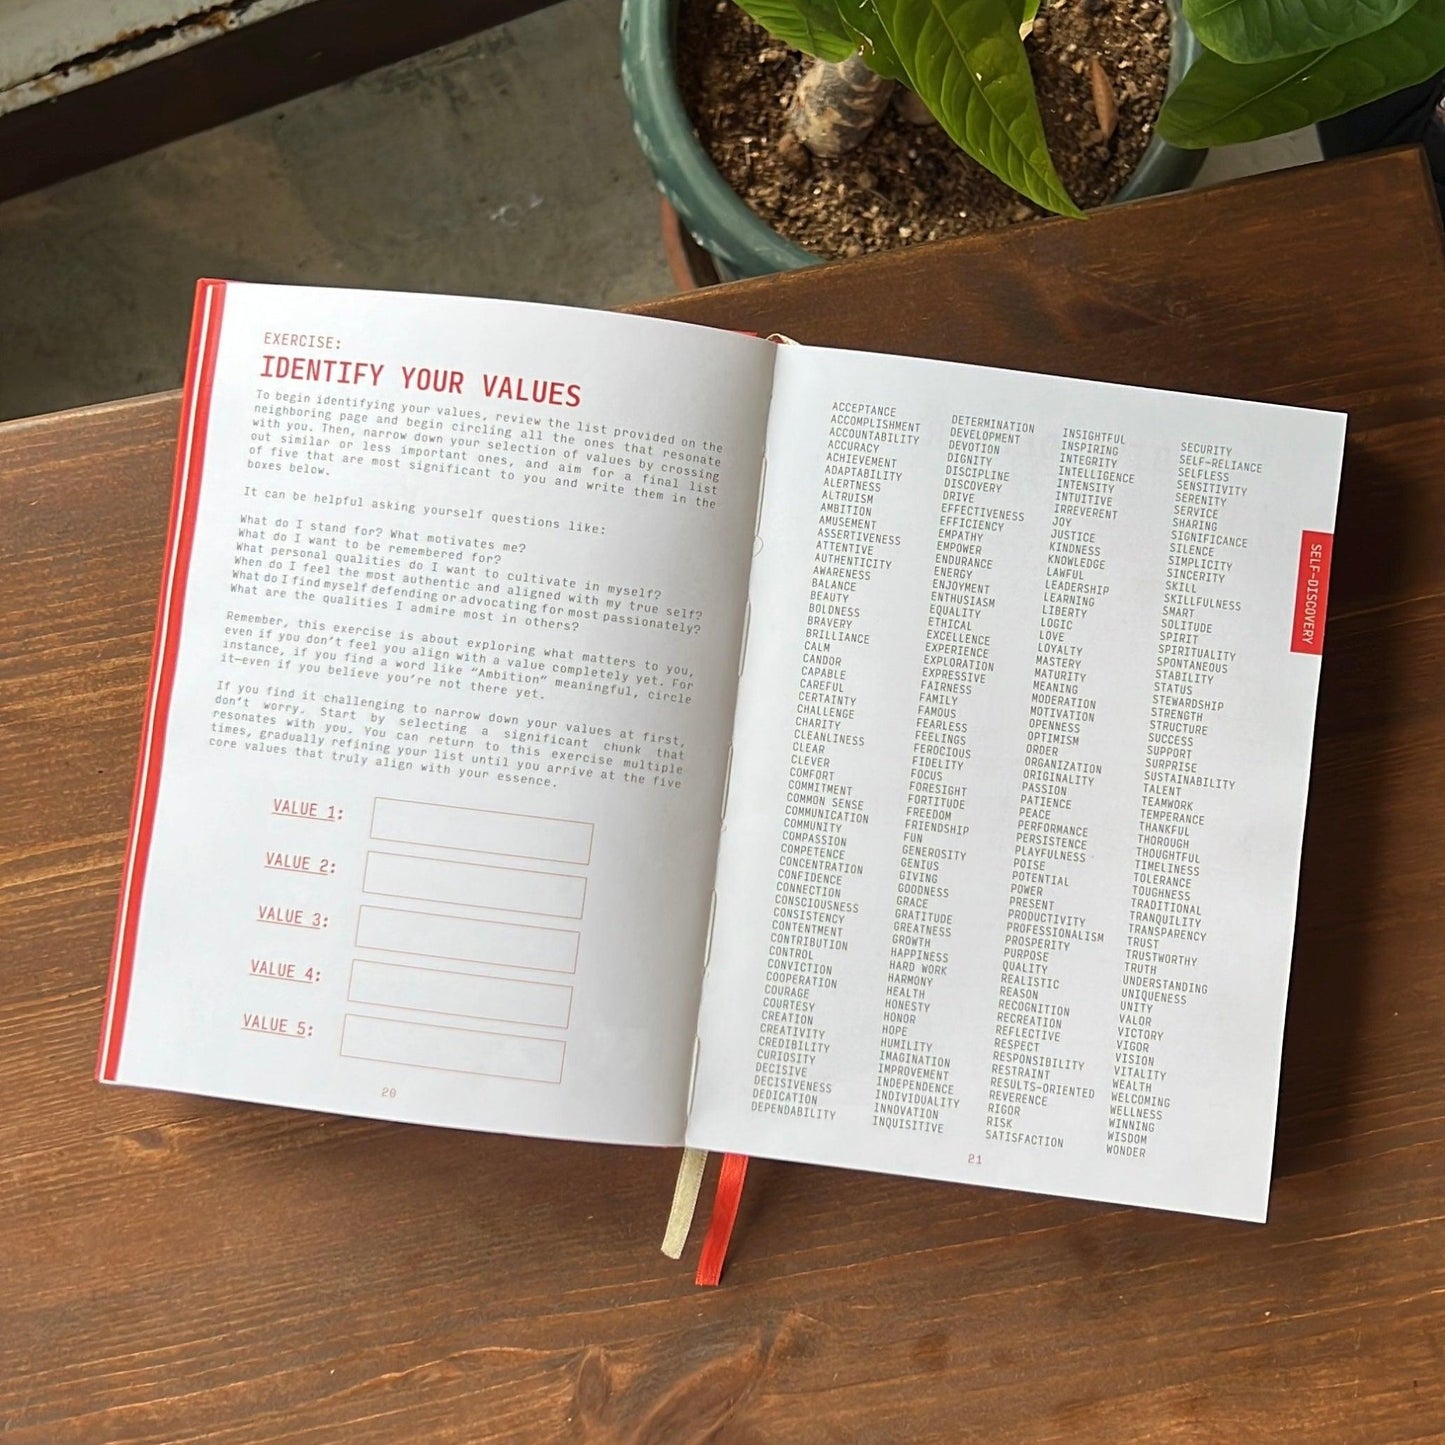 EXERCISE:
IDENTIFY YOUR VALUES
To begin identifying your values, review the list provided on the
neighboring page and begin circling all the ones that resonate
with you. Then, narrow down your selection of values by crossing
out similar or less important ones, and aim for a final list
of five that are most significant to you and write them in the
boxes below.
It can be helpful asking yourself questions like:
What do I stand for? What motivates me?
What do I want to be remembered for?
What personal qualities do I want to cultivate in myself?
When do I feel the most authentic and aligned with my true self?
What do I find myself defending or advocating for most passionately?
What are the qualities I admire most in others?
Remember, this exercise is about exploring what matters to you,
even if you don't feel you align with a value completely yet. For
instance, if you find a word like "Ambition" meaningful, circle
it—even if you believe you're not there yet.
If you find it challenging to narrow down your values at first,
don't worry. Start by selecting a significant chunk that
resonates with you. You can return to this exercise multiple
times, gradually refining your list until you arrive at the five
core values that truly align with your essence.
VALUE 1:
VALUE 2:
VALUE 3:
VALUE 4:
VALUE 5:
20
ACCEPTANCE
ACCOMPLISHMENT
ACCOUNTABILITY
ACCURACY
ACHIEVEMENT
ADAPTABILITY
ALERTNESS
ALTRUISM
AMBITION
AMUSEMENT
ASSERTIVENESS
ATTENTIVE
AUTHENTICITY
AWARENESS
BALANCE
BEAUTY
BOLDNESS
BRAVERY
BRILLIANCE
CALM
CANDOR
CAPABLE
CAREFUL
CERTAINTY
CHALLENGE
CHARITY
CLEANLINESS
CLEAR
CLEVER
COMFORT
COMMITMENT
COMMON SENSE
COMMUNICATION
COMMUNITY
COMPASSION
COMPETENCE
CONCENTRATION
CONFIDENCE
CONNECTION
CONSCIOUSNESS
CONSISTENCY
CONTENTMENT
CONTRIBUTION
CONTROL
CONVICTION
COOPERATION
COURAGE
COURTESY
CREATION
CREATIVITY
CREDIBILITY
CURIOSITY
DECISIVE
DECISIVENESS
DEDICATION
DEPENDABILITY
DETERMINATION
DEVELOPMENT
DEVOTION
DIGNITY
DISCIPLINE
DISCOVERY
DRIVE
EFFECTIVENESS
EFFICIENCY
EMPATHY
EMPOWER
ENDURANCE
ENERGY
ENJOYMENT
ENTHUSIASM
EQUALITY
ETHICAL
EXCELLENCE
EXPERIENCE
EXPLORATION
EXPRESSIVE
FAIRNESS
FAMILY
FAMOUS
FEARLESS
FEELINGS
FEROCIOUS
FIDELITY
FOCUS
FORESIGHT
FORTITUDE
FREEDOM
FRIENDSHIP
FUN
GENEROSITY
GENIUS
GIVING
GOODNESS
GRACE
GRATITUDE
GREATNESS
GROWTH
HAPPINESS
HARD WORK
HARMONY
HEALTH
HONESTY
HONOR
HOPE
HUMILITY
IMAGINATION
IMPROVEMENT
INDEPENDENCE
INDIVIDUALITY
INNOVATION
INQUISITIVE
INSIGHTFUL
INSPIRING
INTEGRITY
INTELLIGENCE
INTENSITY
INTUITIVE
IRREVERENT
JOY
JUSTICE
KINDNESS
KNOWLEDGE
LAWFUL
LEADERSHIP
LEARNING
LIBERTY
LOGIC
LOVE
LOYALTY
MASTERY
MATURITY
MEANING
MODERATION
MOTIVATION
OPENNESS
OPTIMISM
ORDER
ORGANIZATION
ORIGINALITY
PASSION
PATIENCE
PEACE
PERFORMANCE
PERSISTENCE
PLAYFULNESS
POISE
POTENTIAL
POWER
PRESENT
PRODUCTIVITY
PROFESSIONALISM
PROSPERITY
PURPOSE
QUALITY
REALISTIC
REASON
RECOGNITION
RECREATION
REFLECTIVE
RESPECT
RESPONSIBILITY
RESTRAINT
RESULTS-ORIENTED
REVERENCE
RIGOR
RISK
SATISFACTION
SECURITY
SELF-RELIANCE
SELFLESS
SENSITIVITY
SERENITY
SERVICE
SHARING
SIGNIFICANCE
SILENCE
SIMPLICITY
SINCERITY
SKILL
SKILLFULNESS
SMART
SOLITUDE
SPIRIT
SPIRITUALITY
SPONTANEOUS
STABILITY
STATUS
STEWARDSHIP
STRENGTH
STRUCTURE
SUCCESS
SUPPORT
SURPRISE
SUSTAINABILITY
TALENT
TEAMWORK
TEMPERANCE
THANKFUL
THOROUGH
THOUGHTFUL
TIMELINESS
TOLERANCE
TOUGHNESS
TRADITIONAL
TRANQUILITY
TRANSPARENCY
TRUST
TRUSTWORTHY
TRUTH
UNDERSTANDING
UNIQUENESS
UNITY
VALOR
VICTORY
VIGOR
VISION
VITALITY
WEALTH
WELCOMING
WELLNESS
WINNING
WISDOM
WONDER
SELF-DISCOVERY
21